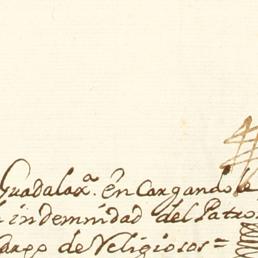 Guadalax.ª encargandole
indemnidad del Patro
Cargo de Religiosos =